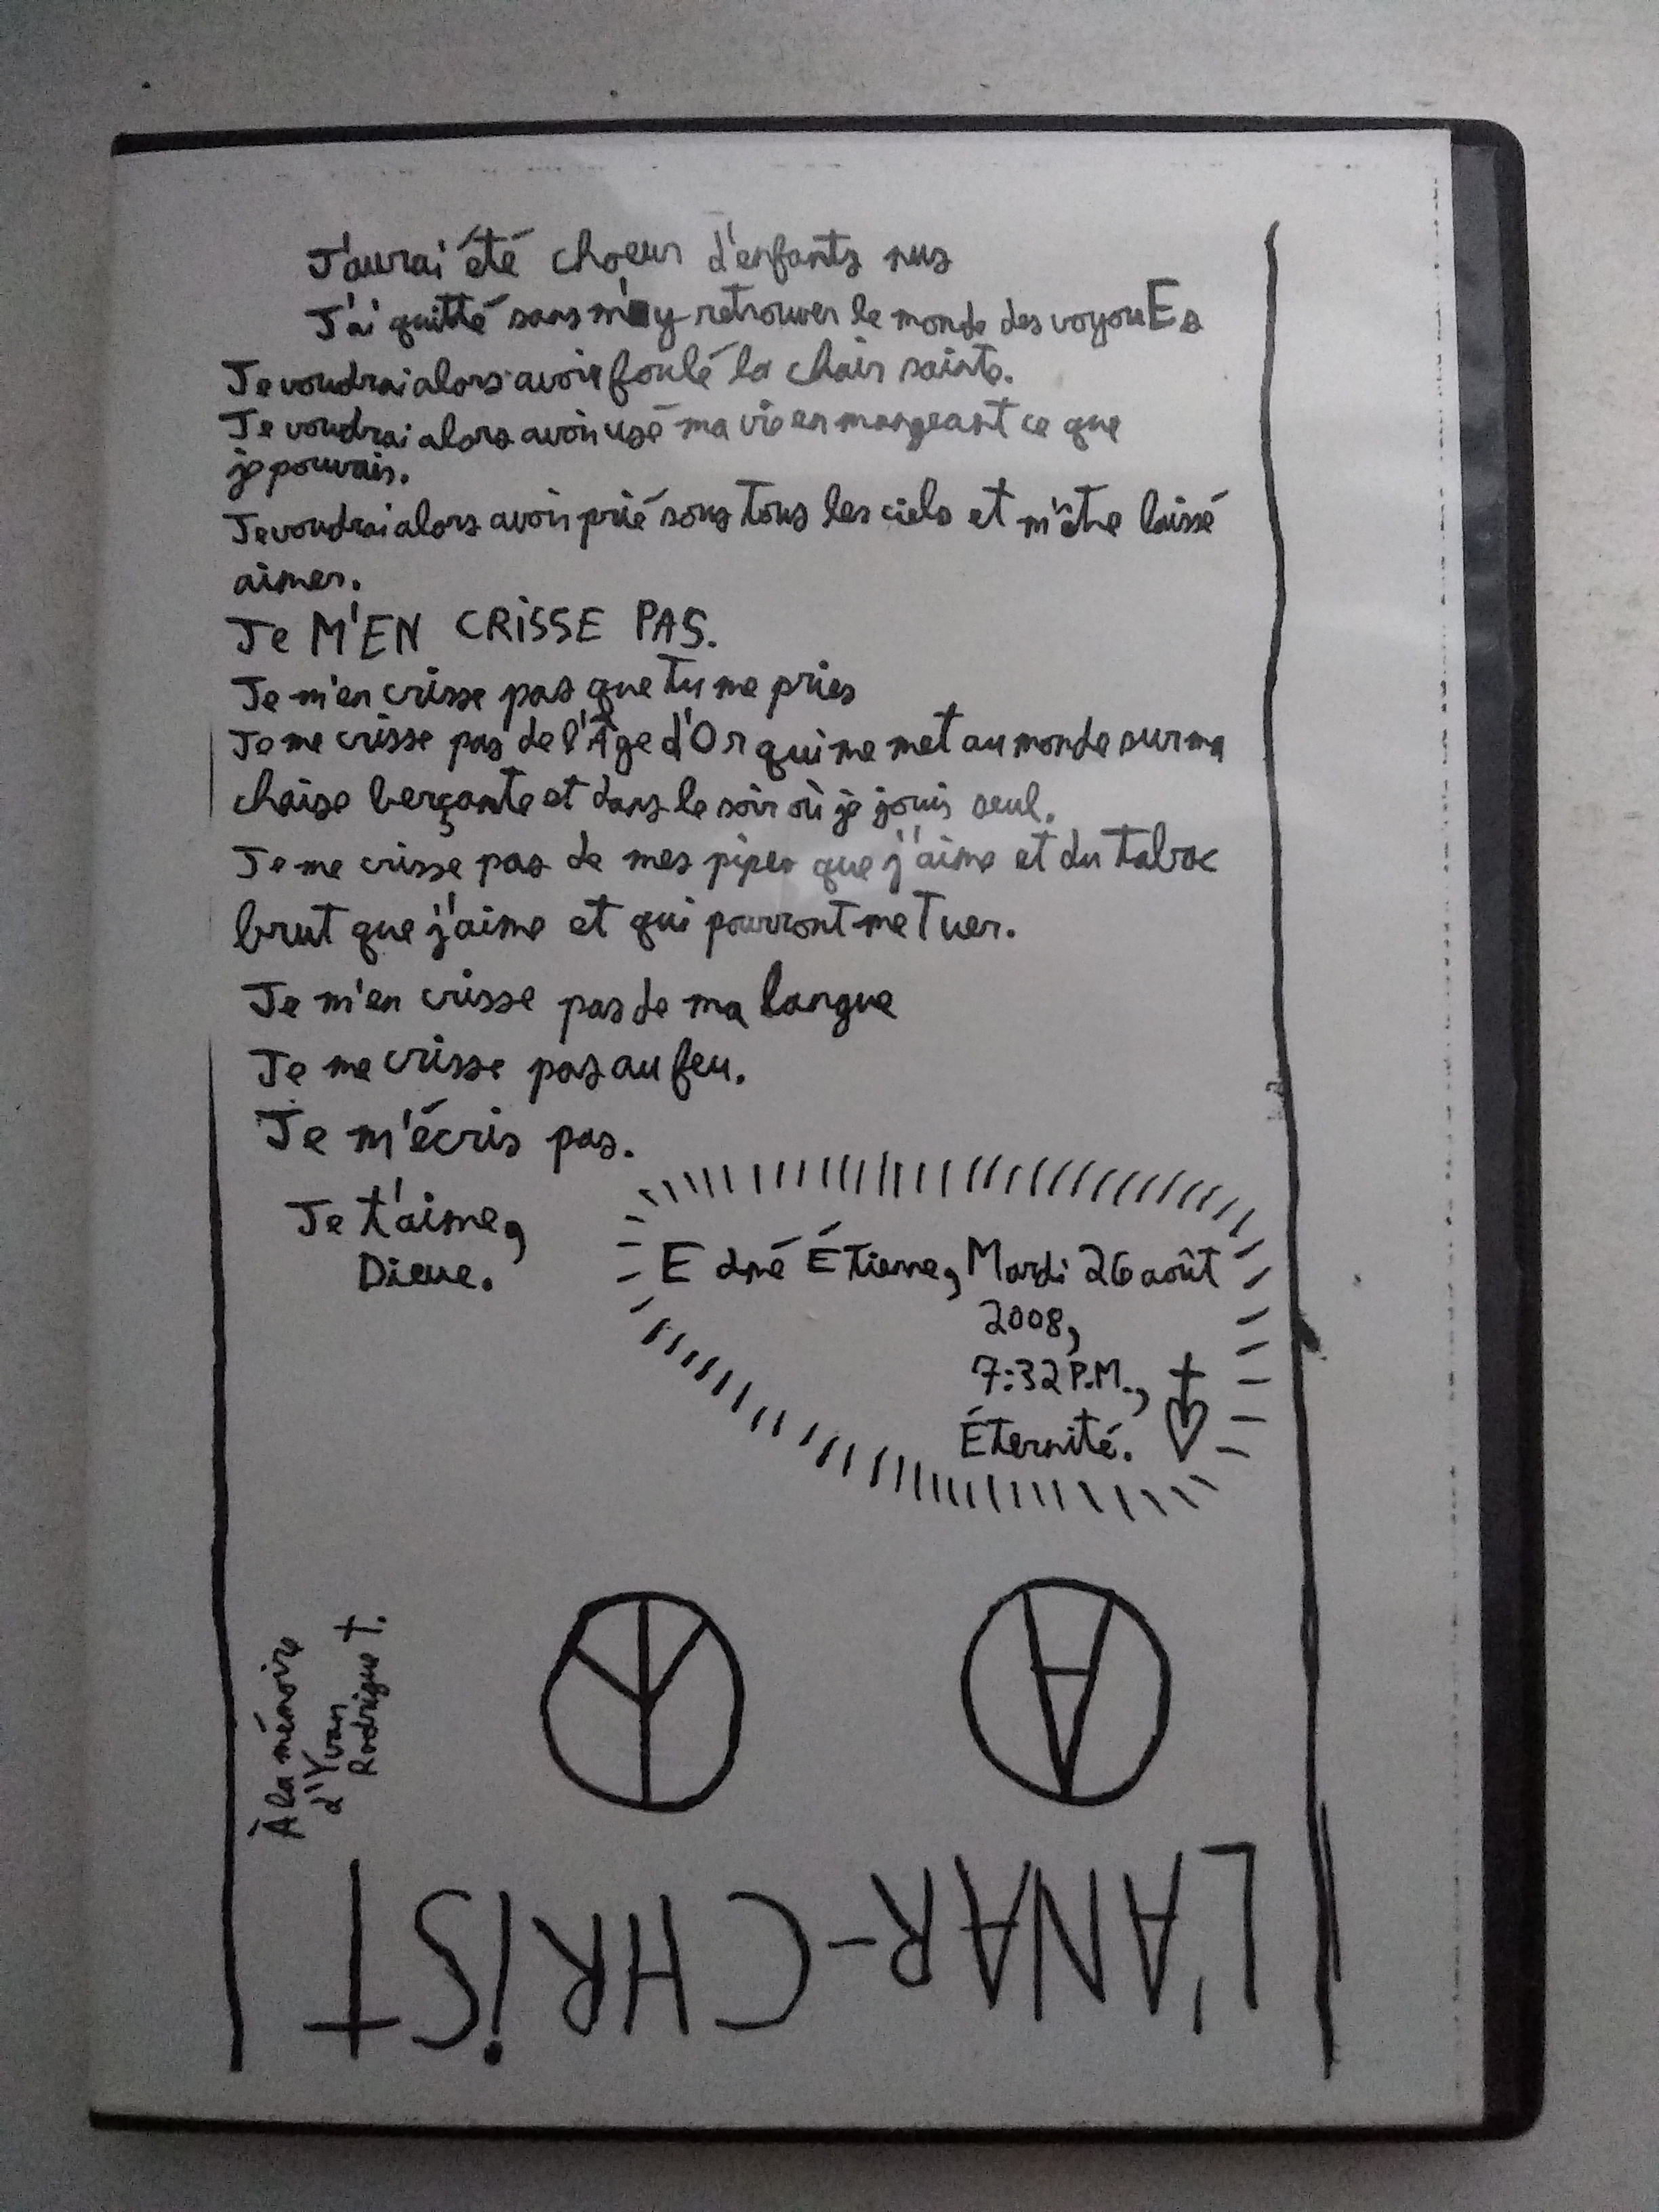 J'aurai été choeur d'enfants nus
J'ai quitté sans m'y retrouver le monde des voyouEs
Je voudrai alors avoir foulé la chair sainte.
Je voudrai alors avoir usé ma vie en mangeant ce que
je pouvais.
Je voudrai alors avoir prié sous tous les ciels et m'être laissé
aimer.
Je M'EN CRISSE PAS.
Je m'en crisse pas que tu me pries
Je me crisse pas de l'Âge d'Or qui me met au monde sur ma
chaise berçante et dans le soir où je jouis seul.
Je me crisse pas de mes pipes que j'aime et du tabac
brut que j'aime et qui pourront me tuer.
Je m'en crisse pas de ma langue
Je me crisse pas au feu.
Je m'écris pas.
Je t'aime,
Dieue.
Edné Étienne, Mardi 26 août
2008,
7:32 P.M.,
Éternité.
À la mémoire
d'Yvan
Rodrigue T.
L'ANAR-CHRIST